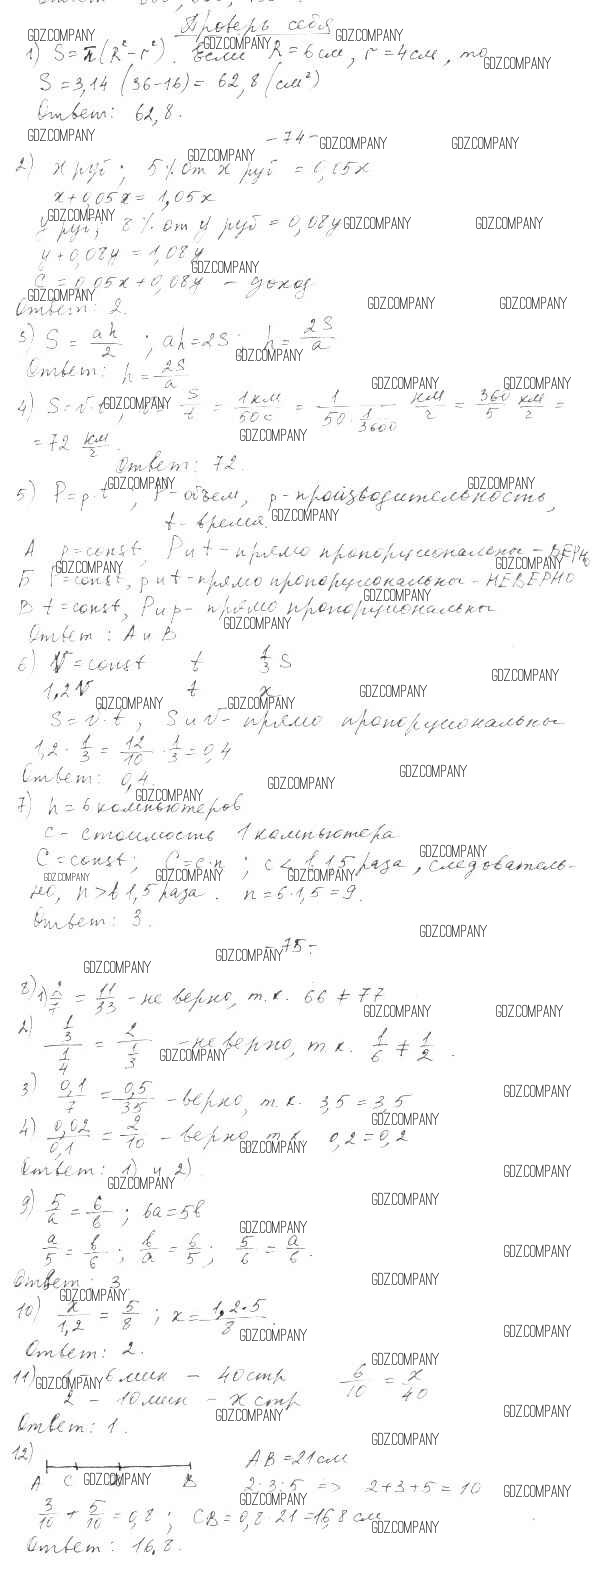 Проверь себя
1) S = π(R² - r²). Если R = 6 см, r = 4 см, то
S = 3,14 (36 - 16) = 62,8 (см²)
Ответ: 62,8.
- 74 -
2) х руб; 5% от х руб = 0,05х
х + 0,05х = 1,05х
у руб; 8% от у руб = 0,08у
у + 0,08у = 1,08у
С = 0,05х + 0,08у - доход
Ответ: 2.
3) S = ah/2 ; ah = 2S ; h = 2S/a
Ответ: h = 2S/a
4) S = v·t ; S/t = 1км/50с = 1/(50 · 1/3600) км/г = 360/5 км/г =
= 72 км/г.
Ответ: 72.
5) P = p·t , P - объем, p - производительность,
t - время.
А p = const, P и t - прямо пропорциональны - ВЕРНО
Б P = const, p и t - прямо пропорциональны - НЕВЕРНО
В t = const, P и p - прямо пропорциональны
Ответ: А и В
6) V = const t 1/3 S
1,2V t x
S = v·t , S и v - прямо пропорциональны
1,2 · 1/3 = 12/10 · 1/3 = 0,4
Ответ: 0,4.
7) n = 6 компьютеров
с - стоимость 1 компьютера
C = const; C = c·n ; c < в 1,5 раза, следователь-
но, n > в 1,5 раза. n = 6·1,5 = 9.
Ответ: 3.
- 75 -
8) 1) = 11/33 - не верно, т.к. 66 ≠ 77
2) (1/3)/(1/4) = 2/(1/3) - не верно, т.к. 1/6 ≠ 1/2.
3) 0,1/7 = 0,5/35 - верно, т.к. 3,5 = 3,5
4) 0,02/0,1 = 2/10 - верно т.к. 0,2 = 0,2
Ответ: 1) и 2).
9) 5/a = 6/в ; 6a = 5в
a/5 = в/6 ; в/a = 6/5 ; 5/6 = a/в.
Ответ: 3
10) x/1,2 = 5/8 ; x = 1,2·5/8
Ответ: 2.
11) 1 - 6 мин - 40 стр 6/10 = x/40
2 - 10 мин - х стр
Ответ: 1.
12) АВ = 21 см
А С В 2:3:5 => 2+3+5 = 10
3/10 + 5/10 = 0,8 ; СВ = 0,8·21 = 16,8 см
Ответ: 16,8.
GDZ.COMPANY